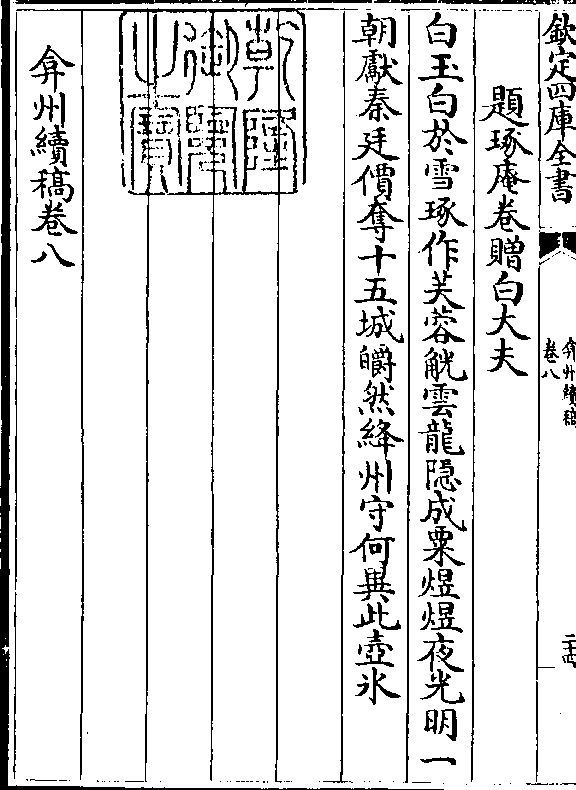 欽定四庫全書
弇州續稿
卷八
二十四
題琢庵卷贈白大夫
白玉白於雪琢作芙蓉觥雲龍隠成粟煜煜夜光明一
朝獻秦廷價奪十五城皭然絳州守何異此壺氷
乾隆御覽之寶
弇州續稿卷八